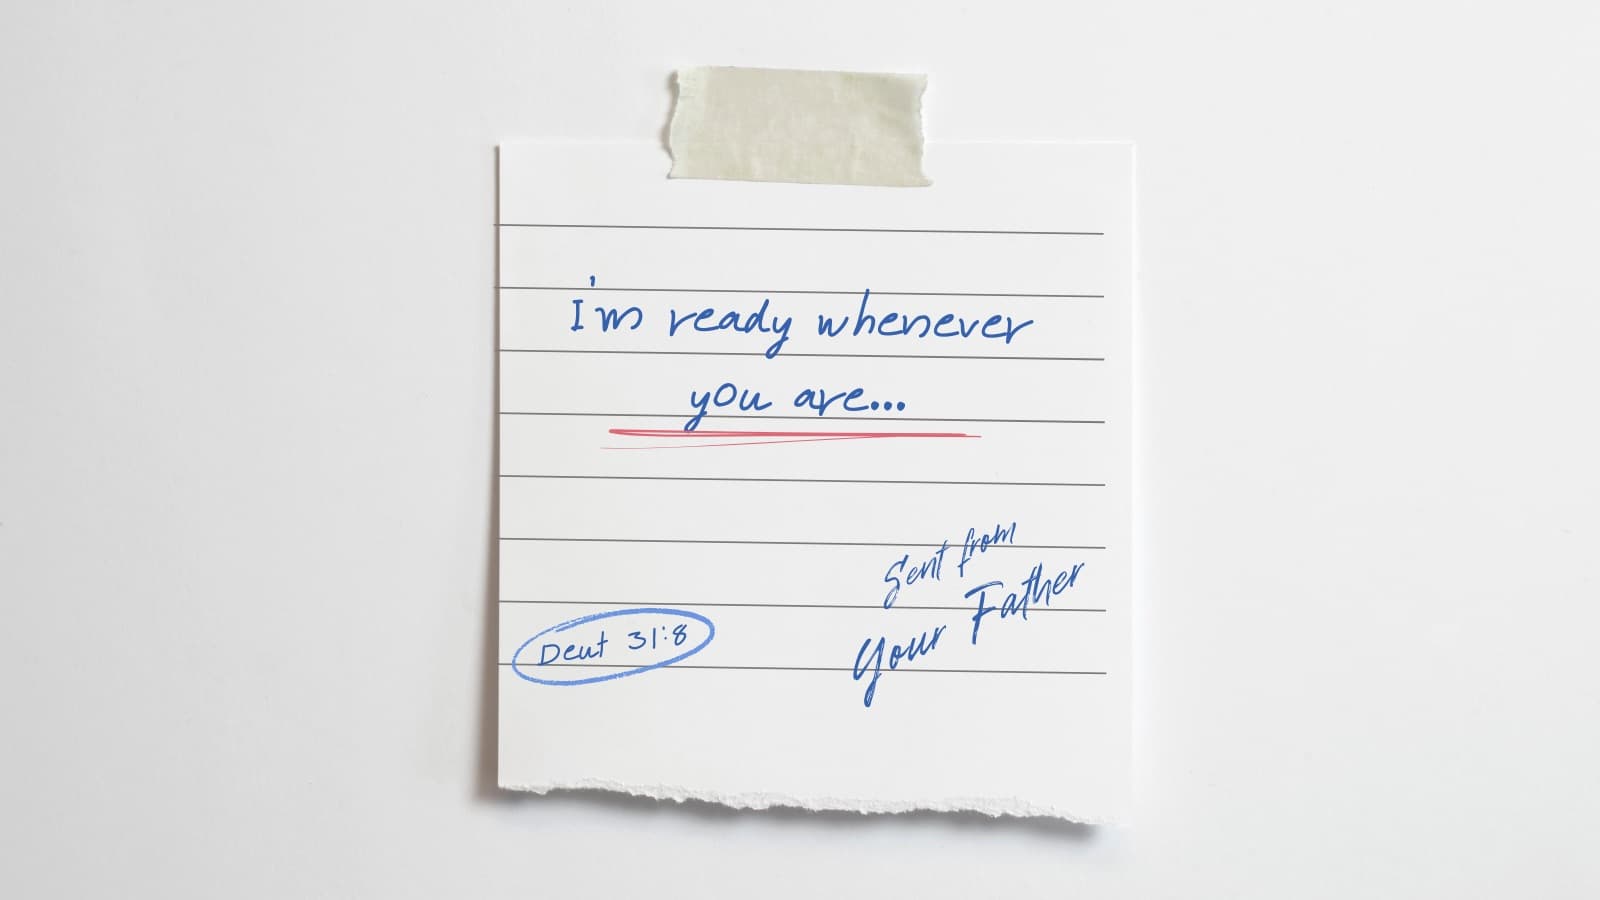 I'm ready whenever
you are...
Sent from
Your Father
Deut 31:8